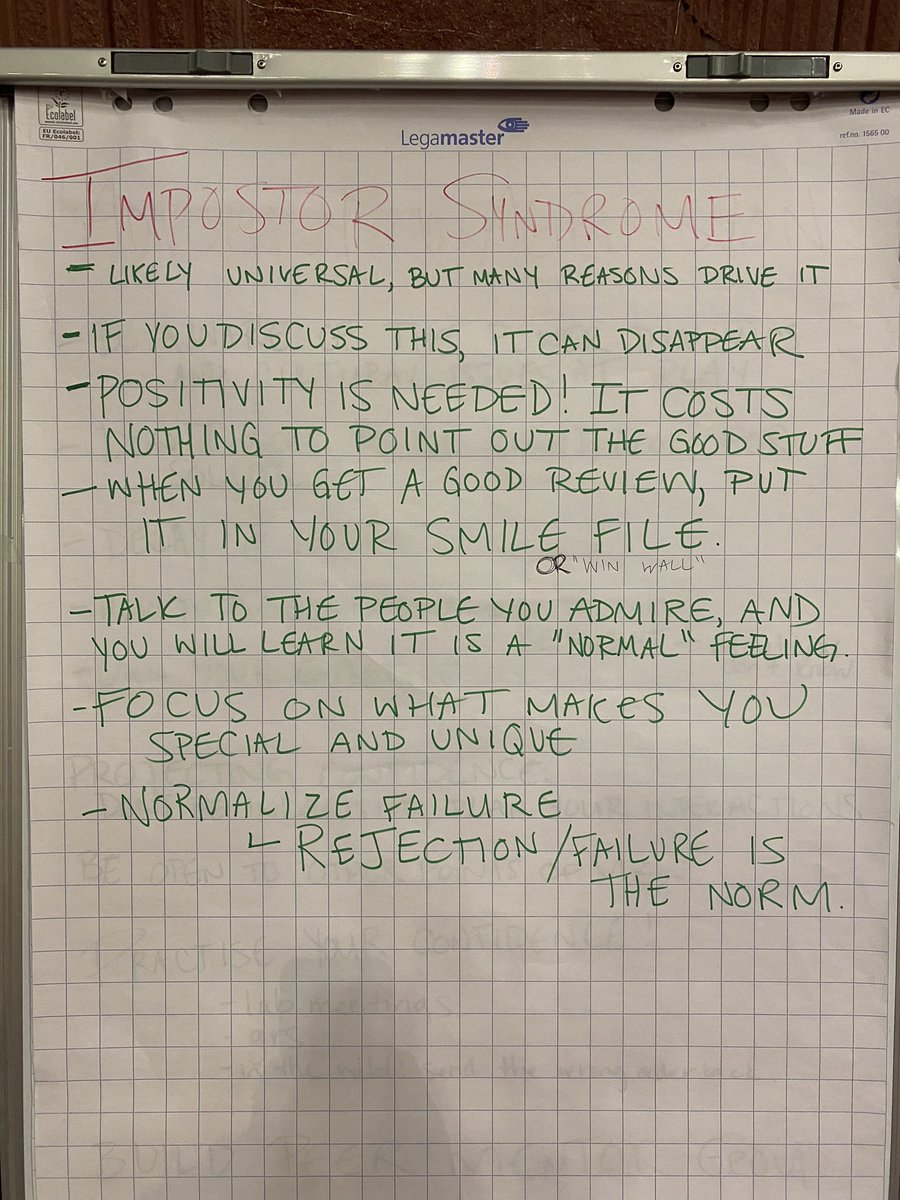 EU
Ecolabel
www.ecolabel.eu
EU Ecolabel:
FR/046/001
Legamaster
Made in EC
ref.no. 1565 00
IMPOSTOR SYNDROME
- LIKELY UNIVERSAL, BUT MANY REASONS DRIVE IT
- IF YOU DISCUSS THIS, IT CAN DISAPPEAR
- POSITIVITY IS NEEDED! IT COSTS
NOTHING TO POINT OUT THE GOOD STUFF
- WHEN YOU GET A GOOD REVIEW, PUT
IT IN YOUR SMILE FILE.
OR "WIN WALL"
- TALK TO THE PEOPLE YOU ADMIRE, AND
YOU WILL LEARN IT IS A "NORMAL" FEELING.
know
- FOCUS ON WHAT MAKES YOU
SPECIAL AND UNIQUE
- NORMALIZE FAILURE
↳ REJECTION/FAILURE IS
THE NORM.
BE OPEN TO
PRACTISE YOUR CONFIDENCE
- lab meetings
the wrong
BUILD PEER MENTOR GROUP